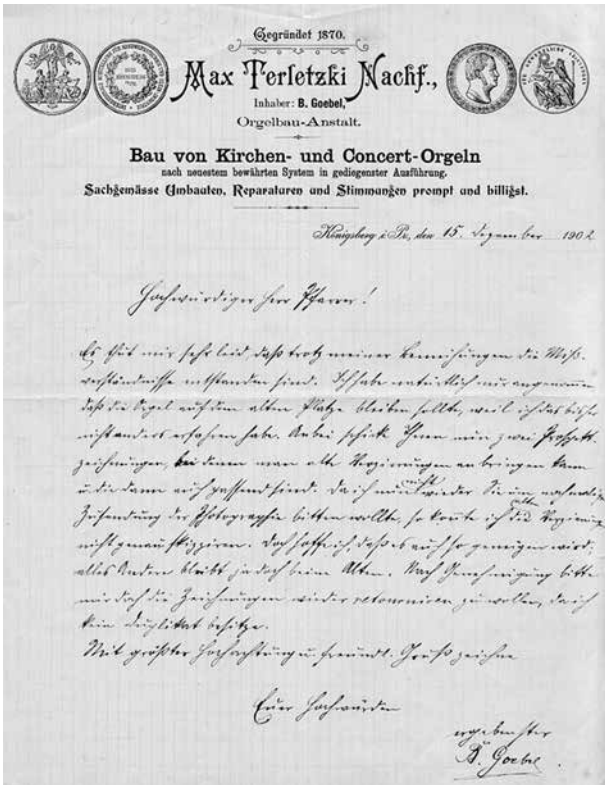 Gegründet 1870.
Max Terletzki Nachf.,
Inhaber: B. Goebel,
Orgelbau-Anstalt.
Bau von Kirchen- und Concert-Orgeln
nach neuestem bewährten System in gediegenster Ausführung.
Sachgemässe Umbauten, Reparaturen und Stimmungen prompt und billigst.
Königsberg i. Pr., den 15. Dezember 1902
Hochwürdiger Herr Pfarrer!
Es thut mir sehr leid, daß trotz meiner Bemühungen die Miß-
verständnisse entstanden sind. Ich habe natürlich nur angenommen
daß die Orgel auf dem alten Platze bleiben sollte, weil ich das bisher
nicht anders erfahren habe. Anbei schicke Ihnen nun zwei Prospekt-
zeichnungen, bei denen man alte Verzierungen anbringen kann
u. die dann auch passend sind. Da ich nun nicht wieder Sie um nochmalige
Zusendung der Photographie bitten wollte, so konnte ich die alten Verzierungen
nicht genau skizziren. Doch hoffe ich, daß es auch so genügen wird;
alles Andere bleibt ja doch beim Alten. Nach Genehmigung bitte
mir doch die Zeichnungen wieder retourniren zu wollen, da ich
kein Duplikat besitze.
Mit größter Hochachtung u. freundl. Gruß zeichne
Euer Hochwürden
ergebenster
B. Goebel